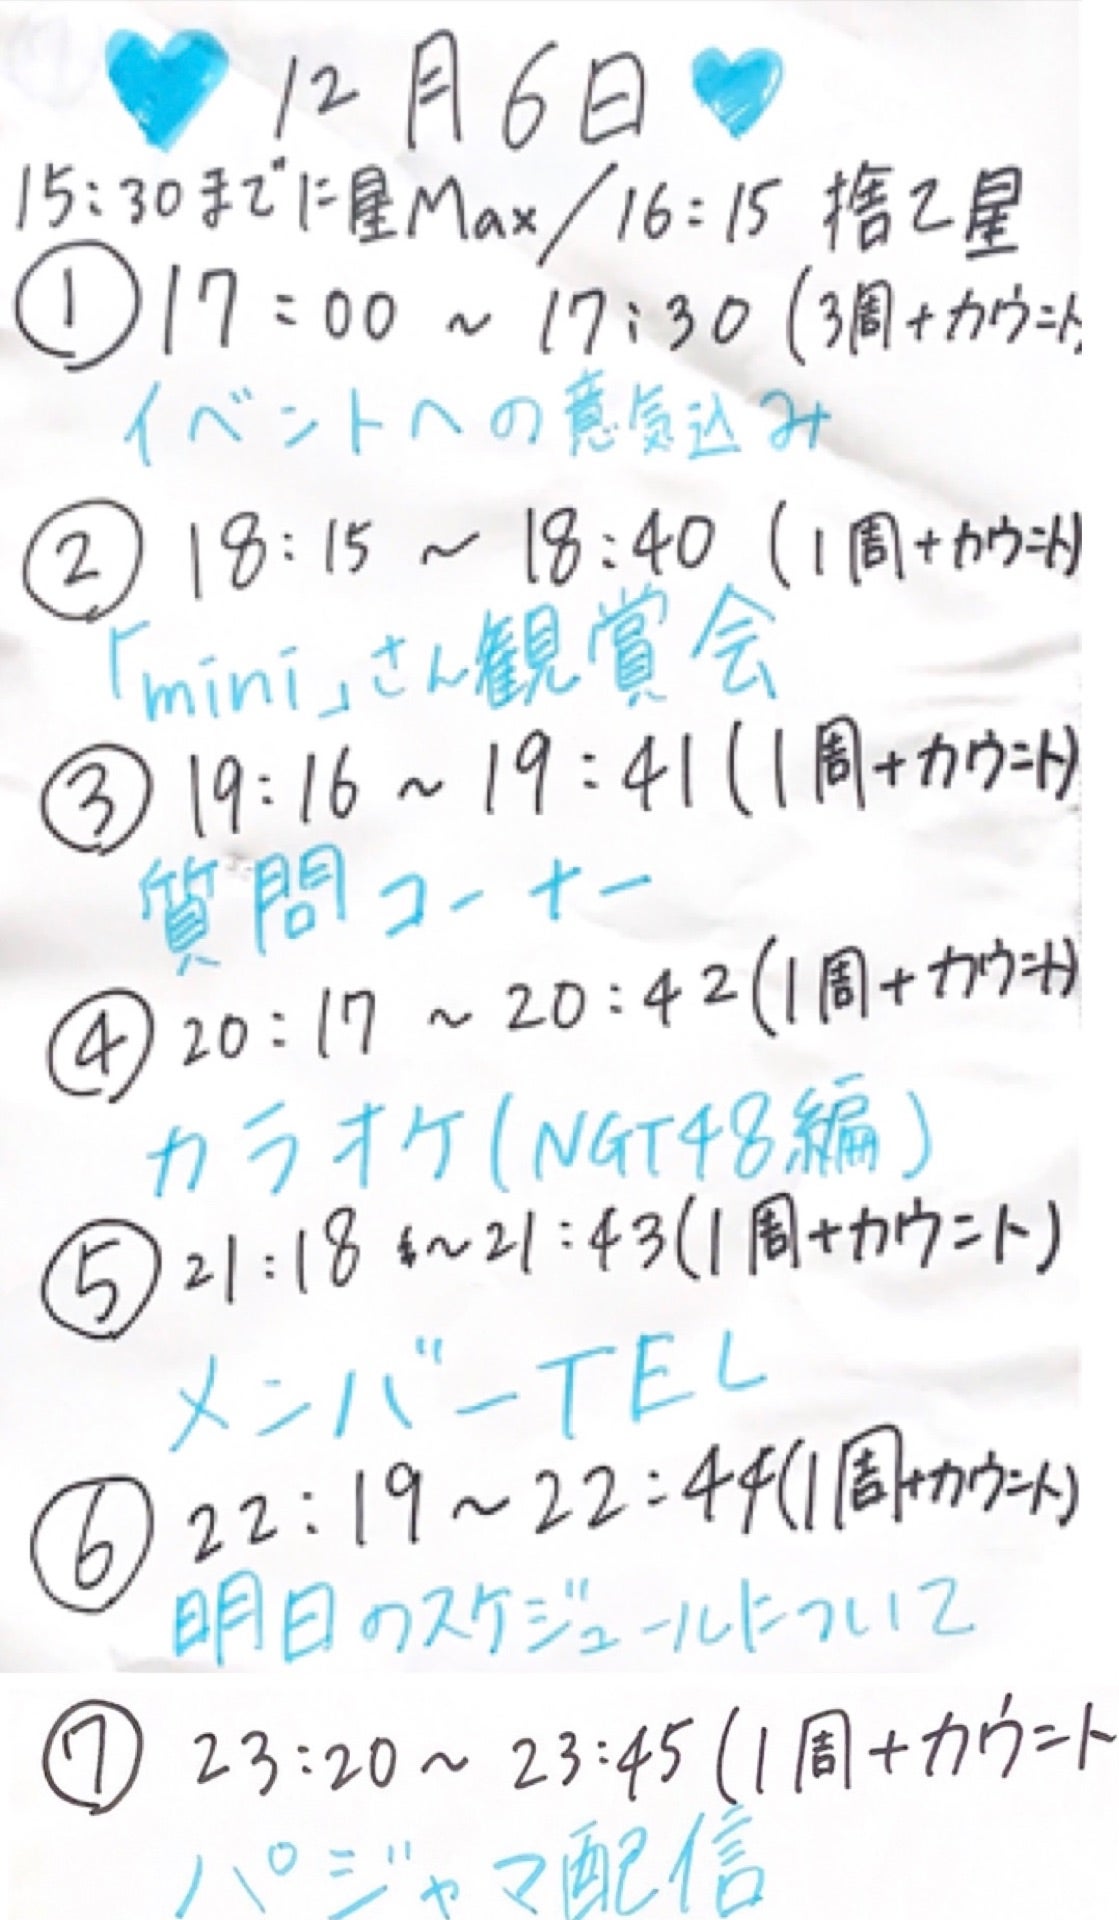 12月6日
15:30までに星Max/16:15 捨て星
① 17:00 ~ 17:30 (3周+カウント
イベントへの意気込み
② 18:15 ~ 18:40 (1周+カウント)
「mini」さん観賞会
③ 19:16 ~ 19:41 (1周+カウント)
質問コーナー
④ 20:17 ~ 20:42 (1周+カウント)
カラオケ(NGT48編)
⑤ 21:18 ~ 21:43 (1周+カウント)
メンバーTEL
⑥ 22:19 ~ 22:44 (1周+カウント)
明日のスケジュールについて
⑦ 23:20 ~ 23:45 (1周+カウント
パジャマ配信